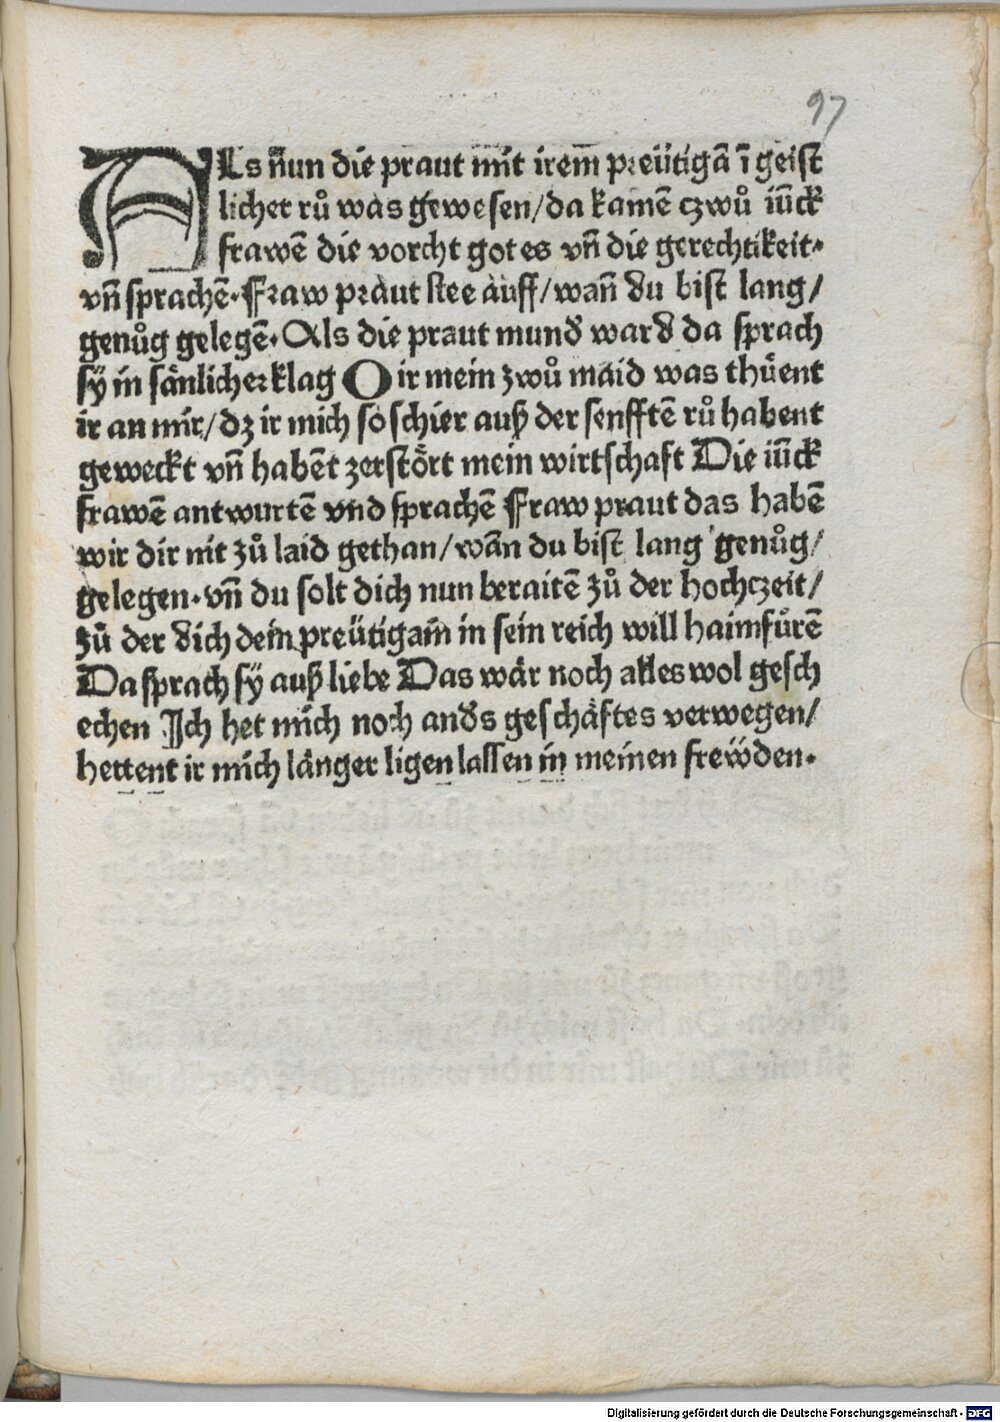 97
ALs nun die praut mit irem preütigā ī geist
licher rů was gewesen/da kamē czwů iūck
frawē die vorcht gotes vn̄ die gerechtikeit·
vn̄ sprachē·Fraw praut stee auff/wan̄ du bist lang/
genůg gelegē·Als die praut mund̛ ward da sprach
sÿ in sänlicher klag O ir mein zwů maid was thůent
ir an mir/dz ir mich so schier auß der senfftē rů habent
geweckt vn̄ habēt zerstört mein wirtschaft Die iūck
frawē antwurtē vnd sprachē Fraw praut das habē
wir dir nit zů laid gethan/wān du bist lang genůg/
gelegen·vn̄ du solt dich nun beraitē zů der hochczeit/
zů der dich dein preütigam in sein reich will haimfůrē
Da sprach sÿ auß liebe Das wär noch alles wol gesch
echen Ich het mich noch and̛s geschäftes verwegen/
hettent ir mich länger ligen lassen in meinen frewden·
Digitalisierung gefördert durch die Deutsche Forschungsgemeinschaft - DFG